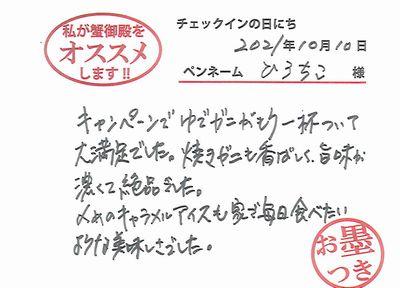 私が蟹御殿を
オススメ
します!!
チェックインの日にち
2021年10月10日
ペンネーム ひろちこ 様
キャンペーンでゆでガニがもう一杯ついて
大満足でした。焼きガニも香ばしく、旨味が
濃くて絶品でした。
〆めのキャラメルアイスも家で毎日食べたい
ような美味しさでした。
お墨
つき